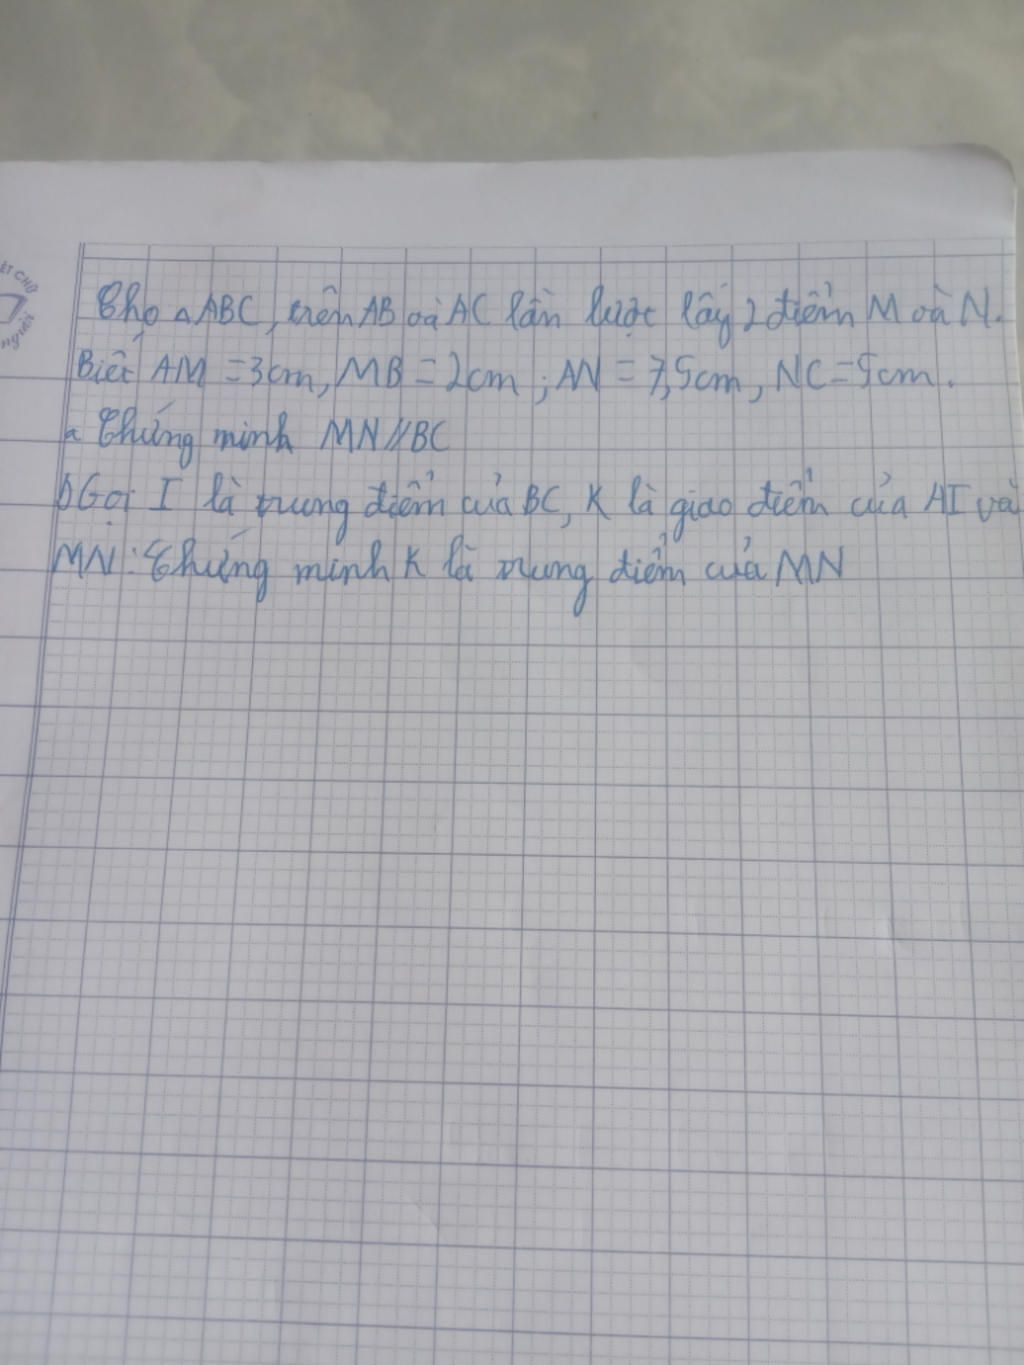 ẾT CHỮ
người
Cho △ABC, trên AB và AC lần lượt lấy 2 điểm M và N.
Biết AM = 3cm, MB = 2cm; AN = 7,5cm, NC = 5cm.
a Chứng minh MN//BC
b Gọi I là trung điểm của BC, K là giao điểm của AI và
MN: Chứng minh K là trung điểm của MN